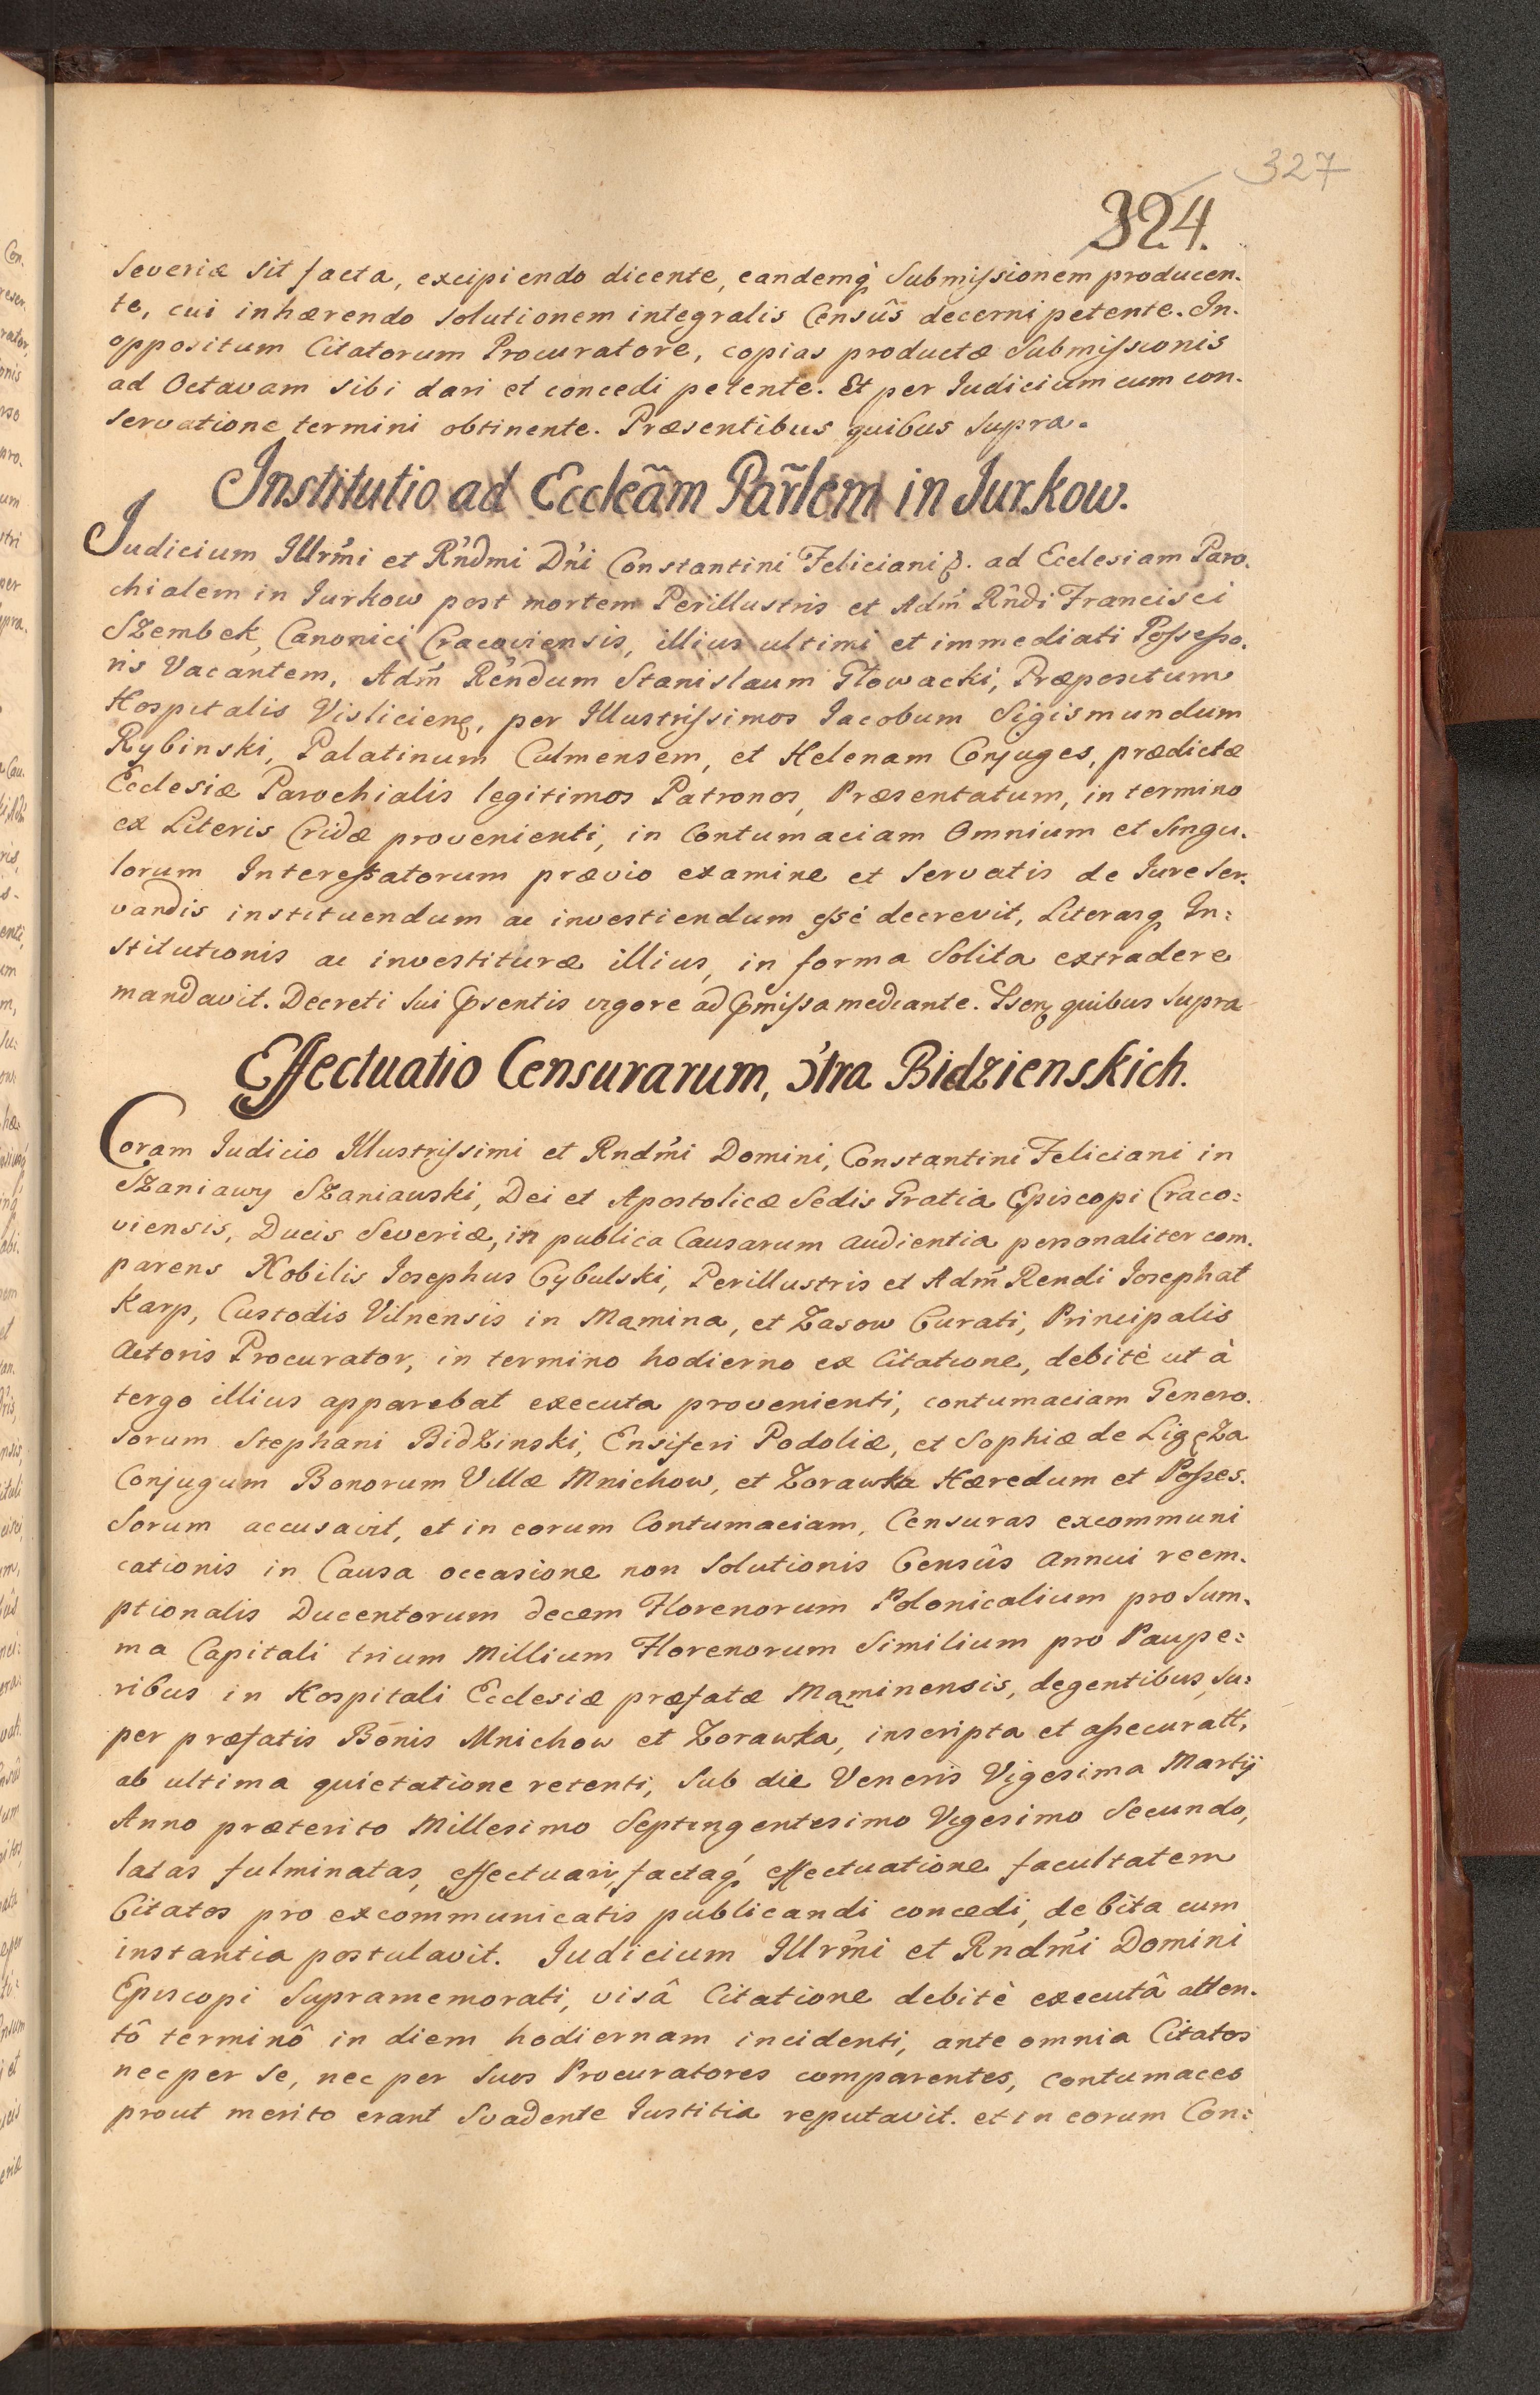 327
324.
Severiæ sit facta, excipiendo dicente, eandemq́ Submissionem producen.
te, cui inhærendo solutionem integralis Censûs decerni petente. In.
oppositum Citatorum Procuratore, copias productæ Submissionis
ad Octavam sibi dari et concedi petente. Et per Iudicium cum con.
servatione termini obtinente. Præsentibus quibus supra.
Institutio ad Eccleãm Par̃lem in Iurkow.
Judicium Illrḿi et Rńdmi Dńi Constantini Feliciani p. ad Ecclesiam Paro.
chialem in Iurkow post mortem Perillustris et Adm̃ Rńdi Francisci
Szembek, Canonici Cracoviensis, illius ultimi et immediati Possesso.
ris Vacantem, Adm̃ Reńdum Stanislaum Głowacki, Præpositum
Hospitalis Visliciens, per Illustrissimos Iacobum Sigismundum
Rybinski, Palatinum Culmensem, et Helenam Conjuges, prædictæ
Ecclesiæ Parochialis legitimos Patronos, Præsentatum, in termino
ex Literis Cridæ provenienti, in Contumaciam Omnium et Singu.
lorum Interessatorum prævio examine et servatis de Iure ser.
vandis instituendum ac investiendum esse decrevit, Literasq In:
stitutionis ac investituræ illius, in forma Solita extradere
mandavit. Decreti sui psentis vigore ad pmissa mediante. Psen. quibus supra
Effectuatio Censurarum, ɔ́tra Bidzienskich.
Coram Iudicio Illustrissimi et Rndḿi Domini, Constantini Feliciani in
Szaniawy Szaniawski, Dei et Apostolicæ Sedis Gratia Episcopi Craco:
viensis, Ducis Severiæ, in publica Causarum audientia personaliter com.
parens Nobilis Iosephus Cybulski, Perillustris et Adm̃ Rendi Iosephat
Karp, Custodis Vilnensis in Mamina, et Zasow Curati, Principalis
Actoris Procurator, in termino hodierno ex Citatione, debitè ut à
tergo illius apparebat executa provenienti, contumaciam Genero.
sorum Stephani Bidzinski, Ensiferi Podoliæ, et Sophiæ de Ligęza
Conjugum Bonorum Villæ Mnichow, et Zorawka Hæredum et Posses.
sorum accusavit, et in eorum Contumaciam, Censuras excommuni
cationis in Causa occasione non Solutionis Censûs annui reem.
ptionalis Ducentorum decem Florenorum Polonicalium pro Sum.
ma Capitali trium Millium Florenorum Similium pro Paupe:
ribus in Hospitali Ecclesiæ præfatæ Maminensis, degentibus, su:
per præfatis Bonis Mnichow et Zorawka, inscripta et assecuratt,
ab ultima quietatione retenti, sub die Veneris Vigesima Martij
Anno præterito Millesimo Septingentesimo Vigesimo Secundo,
latas fulminatas, effectuari, factaq́ effectuatione facultatem
Citatos pro excommunicatis publicandi concedi, debita cum
instantia postulavit. Iudicium Illrḿi et Rndḿi Domini
Episcopi Supramemorati, visâ Citatione debitè executâ atten.
tô terminô in diem hodiernam incidenti, ante omnia Citatos
nec per se, nec per suos Procuratores comparentes, contumaces
prout merito erant Suadente Iustitia reputavit. et in eorum Con: